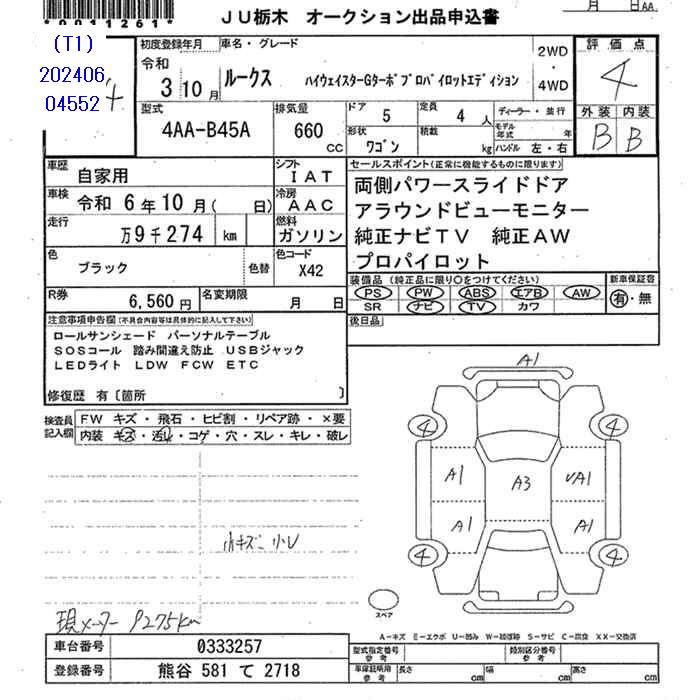 *0011261*
月 日AA
JU栃木 オークション出品申込書
(T1)
202406
04552
4
初度登録年月 車名・グレード
令和
3 10 月 ルークス ハイウェイスターGターボプロパイロットエディション
2WD
・
4WD
評価点
4
型式
4AA-B45A
排気量
660
CC
ドア
5
定員
4 人
ディーラー・並行
モデル年式 年
形状
ワゴン
積載
kg
ハンドル 左・右
外装 内装
B B
車歴
自家用
シフト
IAT
車検
令和 6年10月( 日)
冷房
AAC
走行
万9千274 km
燃料
ガソリン
色
ブラック 色替
色コード
X42
R券
6,560 円
名変期限
月 日
セールスポイント(正常に機能するものに限ります)
両側パワースライドドア
アラウンドビューモニター
純正ナビTV 純正AW
プロパイロット
装備品 (純正品に限り○をつけてください)
PS PW ABS エアB AW
SR ナビ TV カワ
新車保証書
有・無
後日品
注意事項申告欄(不具合内容等は具体的に記入して下さい)
ロールサンシェード パーソナルテーブル
SOSコール 踏み間違え防止 USBジャック
LEDライト LDW FCW ETC
修復歴 有〔箇所 〕
検査員記入欄
FW キズ・飛石・ヒビ割・リペア跡・×要
内装 キズ・汚れ・コゲ・穴・スレ・キレ・破レ
小キズ 小U
現メーター 9275km
A1
4 4
A1 A3 A1
A1 A1
4 4
スペア
A1
A−キズ E−エクボ U−凹み W−補修跡 S−サビ C−腐食 XX−交換済
車台番号 0333257
登録番号 熊谷 581 て 2718
型式指定番号
参考
類別区分番号
参考
車庫証明用
参考
長さ cm 幅 cm 高さ cm